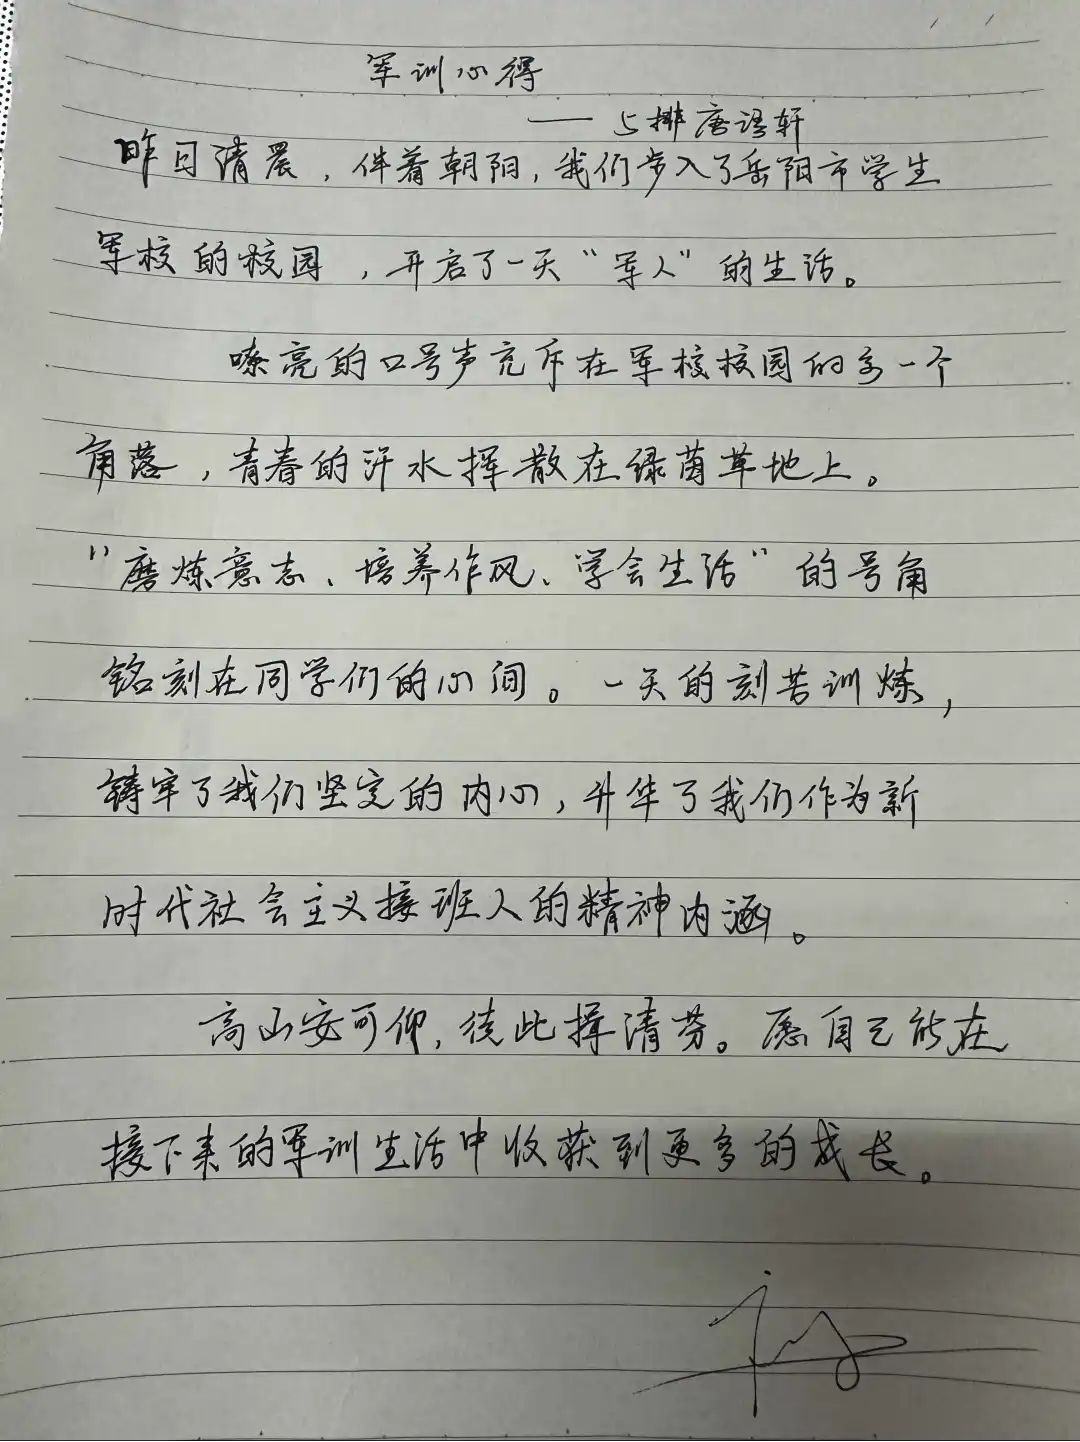 军训心得
——5排唐语轩
昨日清晨，伴着朝阳，我们步入了岳阳市学生
军校的校园，开启了一天“军人”的生活。
嘹亮的口号声充斥在军校校园的每一个
角落，青春的汗水挥散在绿茵草地上。
“磨炼意志、培养作风、学会生活”的号角
铭刻在同学们的心间。一天的刻苦训炼，
铸牢了我们坚定的内心，升华了我们作为新
时代社会主义接班人的精神内涵。
高山安可仰，徒此揖清芬。愿自己能在
接下来的军训生活中收获到更多的成长。